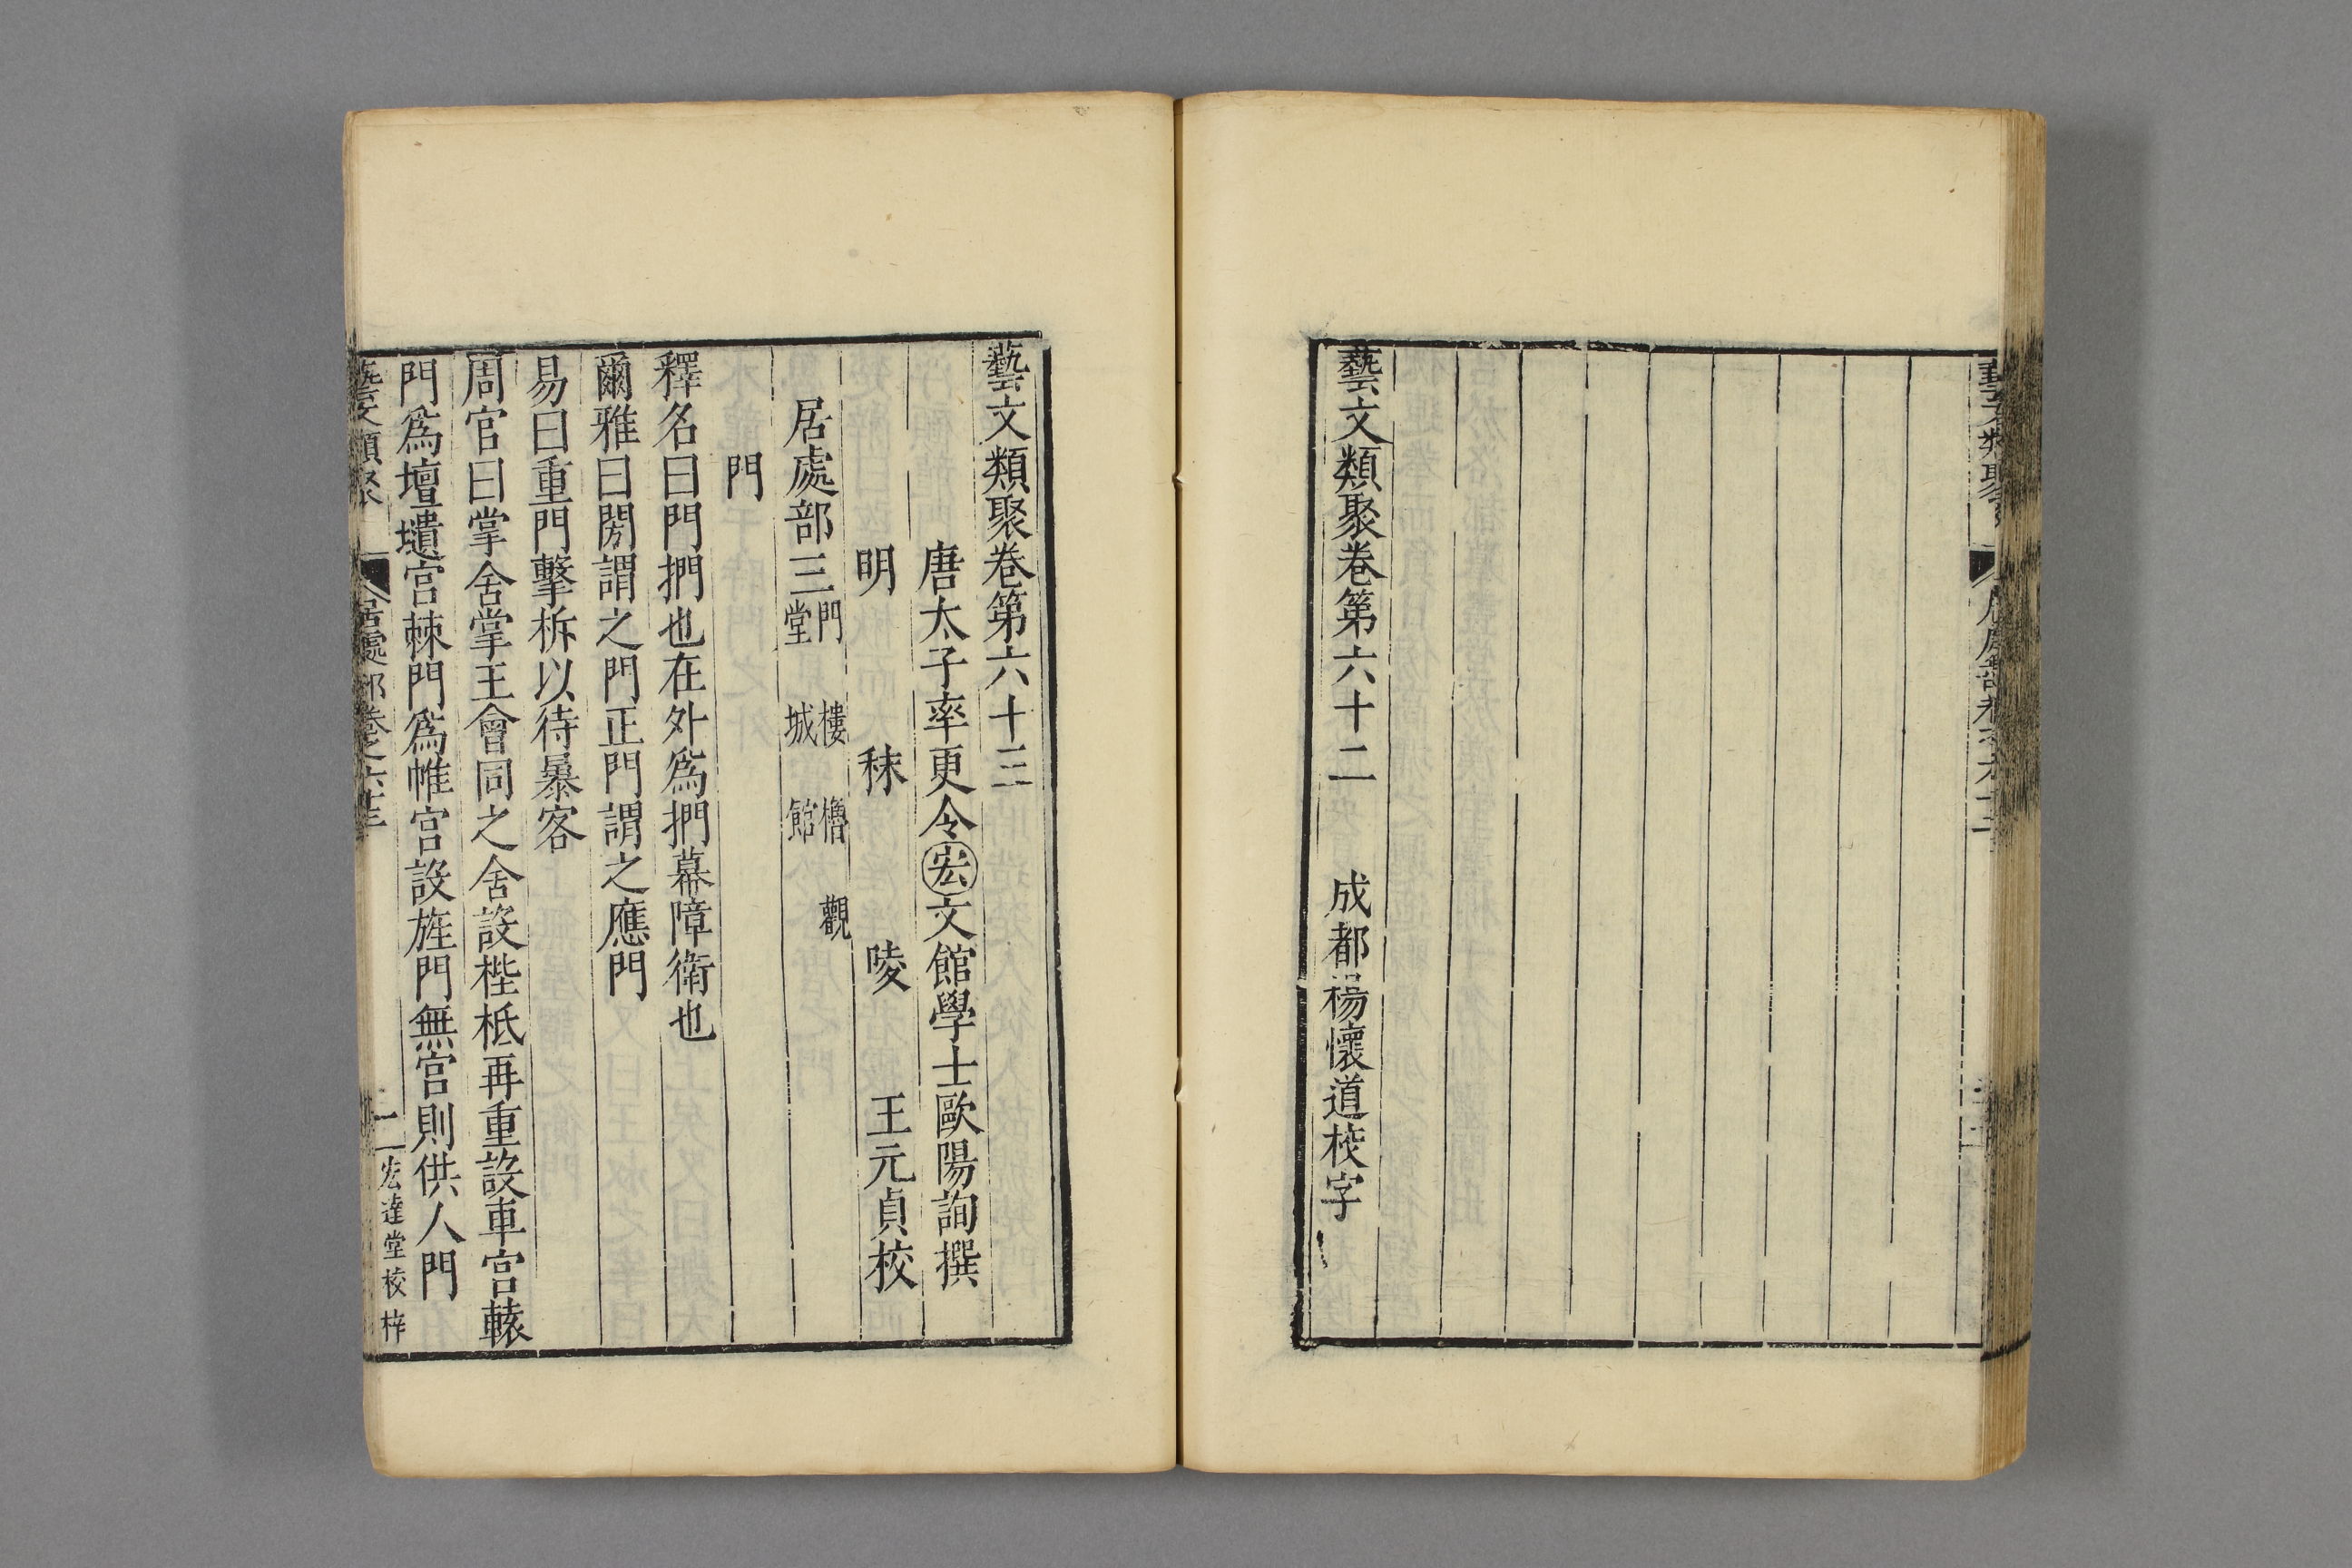 藝文類聚卷第六十二　成都楊懷道校字
藝文類聚卷第六十三
唐太子率更令宏文館學士歐陽詢撰
明　秣　陵　王元貞校
居處部三門　樓　櫓　觀
堂　城　館
門
釋名曰門捫也在外爲捫幕障衛也
爾雅曰閍謂之門正門謂之應門
易曰重門擊柝以待暴客
周官曰掌舍掌王會同之舍設梐柢再重設車宮轅
門爲壇壝宮棘門爲帷宮設旌門無宮則供人門
藝文類聚　居處部卷之六十三　一　宏達堂校梓